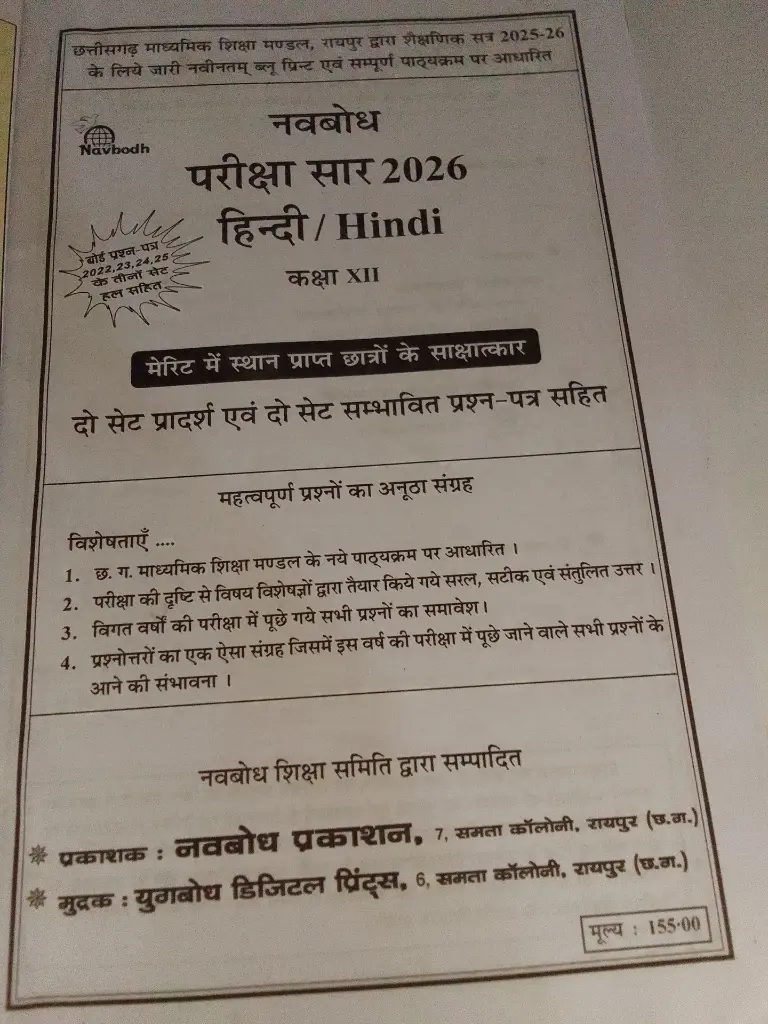 छत्तीसगढ़ माध्यमिक शिक्षा मण्डल, रायपुर द्वारा शैक्षणिक सत्र 2025-26
के लिये जारी नवीनतम् ब्लू प्रिन्ट एवं सम्पूर्ण पाठ्यक्रम पर आधारित
Navbodh
नवबोध
परीक्षा सार 2026
हिन्दी / Hindi
कक्षा XII
बोर्ड प्रश्न-पत्र
2022,23,24,25
के तीनों सेट
हल सहित
मेरिट में स्थान प्राप्त छात्रों के साक्षात्कार
दो सेट प्रादर्श एवं दो सेट सम्भावित प्रश्न-पत्र सहित
महत्वपूर्ण प्रश्नों का अनूठा संग्रह
विशेषताएँ ....
1. छ. ग. माध्यमिक शिक्षा मण्डल के नये पाठ्यक्रम पर आधारित ।
2. परीक्षा की दृष्टि से विषय विशेषज्ञों द्वारा तैयार किये गये सरल, सटीक एवं संतुलित उत्तर ।
3. विगत वर्षों की परीक्षा में पूछे गये सभी प्रश्नों का समावेश ।
4. प्रश्नोत्तरों का एक ऐसा संग्रह जिसमें इस वर्ष की परीक्षा में पूछे जाने वाले सभी प्रश्नों के
आने की संभावना ।
नवबोध शिक्षा समिति द्वारा सम्पादित
प्रकाशक : नवबोध प्रकाशन, 7, समता कॉलोनी, रायपुर (छ.ग.)
मुद्रक : युगबोध डिजिटल प्रिंट्स, 6, समता कॉलोनी, रायपुर (छ.ग.)
मूल्य : 155·00